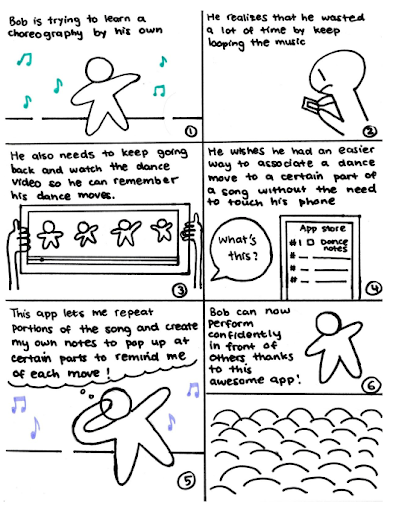 Bob is trying to learn a
choreography by his own
1
He realizes that he wasted
a lot of time by keep
looping the music
2
He also needs to keep going
back and watch the dance
video so he can remember
his dance moves.
3
He wishes he had an easier
way to associate a dance
move to a certain part of
a song without the need
to touch his phone
what's
this?
App store
#1 Dance
notes
#
#
4
This app lets me repeat
portions of the song and create
my own notes to pop up at
certain parts to remind me
of each move!
5
Bob can now
perform
confidently
in front of
others, thanks
to this
awesome app!
6